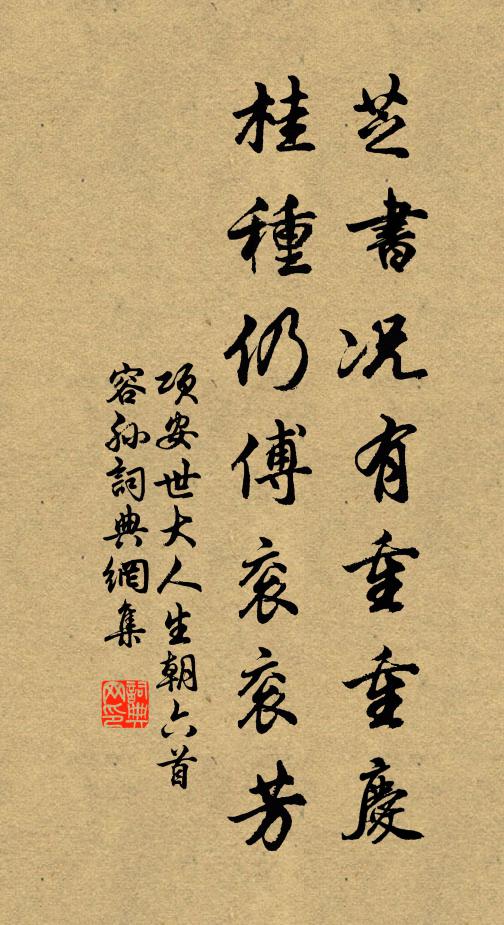 芝書况有重重慶
桂種仍傅衮衮芳
項安世大人生朝六首
容孙詞典網集
詞典网印